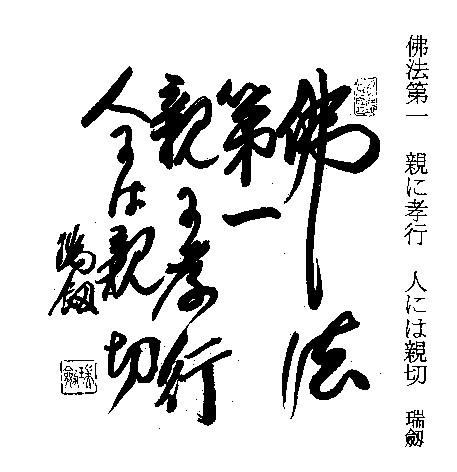 佛法第一 親に孝行 人には親切 瑞劔
佛法
第一
親に孝行
人には親切
瑞劔